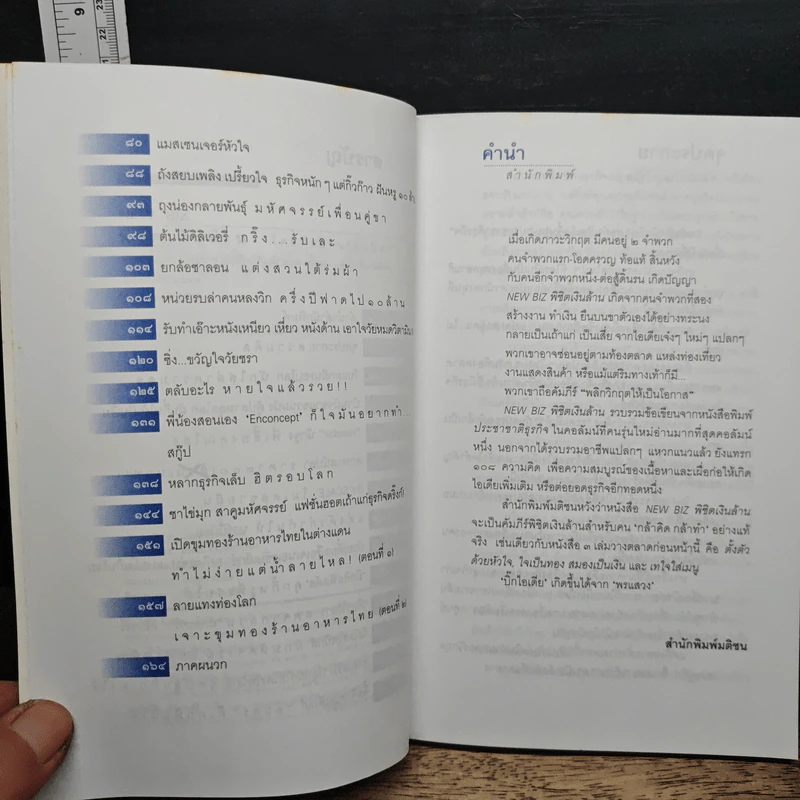 9
23
22
21
๘๐ แมสเซนเจอร์หัวใจ
๘๘ ถังสยบเพลิง เปรี้ยวใจ ธุรกิจหนักๆ แต่กิ๊วก๊าว ฝันหรู ๑๐ ล้าน
๙๓ ถุงน่องกลายพันธุ์ มหัศจรรย์เพื่อนคู่ขา
๙๘ ต้นไม้ดิลิเวอรี่ กริ๊ง...รับเละ
๑๐๓ ยกล้อซาลอน แต่งสวนใต้ร่มผ้า
๑๐๘ หน่วยรบล่าคนหลงวิก ครึ่งปีฟาดไป๑๐ล้าน
๑๑๔ รับทำเอ๊าะหนังเหนียว เหี่ยว หนังด้าน เอาใจวัยหมดวิตามิน
๑๒๐ ซิ่ง...ขวัญใจวัยชรา
๑๒๕ ตลับอะไร หายใจแล้วรวย!!
๑๓๑ พี่น้องสอนเอง ‘Enconcept’ ก็ใจมันอยากทำ
สกู๊ป
๑๓๘ หลากธุรกิจเล็บ ฮิตรอบโลก
๑๔๔ ชาไข่มุก สาคูมหัศจรรย์ แฟชั่นฮอตเถ้าแก่ธุรกิจดริ๊งก์!
๑๕๑ เปิดขุมทองร้านอาหารไทยในต่างแดน
ทำไม่ง่ายแต่น้ำลายไหล! (ตอนที่ ๑)
๑๕๗ ลายแทงท่องโลก
เจาะขุมทองร้านอาหารไทย (ตอนที่ ๒)
๑๖๔ ภาคผนวก
คำนำ
สำนักพิมพ์
เมื่อเกิดภาวะวิกฤต มีคนอยู่ ๒ จำพวก
คนจำพวกแรก-โอดครวญ ท้อแท้ สิ้นหวัง
กับคนอีกจำพวกหนึ่ง-ต่อสู้ดิ้นรน เกิดปัญญา
NEW BIZ พิชิตเงินล้าน เกิดจากคนจำพวกที่สอง
สร้างงาน ทำเงิน ยืนบนขาตัวเองได้อย่างทระนง
กลายเป็นเถ้าแก่ เป็นเสี่ย จากไอเดียเจ๋งๆ ใหม่ๆ แปลกๆ
พวกเขาอาจซ่อนอยู่ตามท้องตลาด แหล่งท่องเที่ยว
งานแสดงสินค้า หรือแม้แต่ริมทางเท้าก็มี...
พวกเขาถือคัมภีร์ “พลิกวิกฤตให้เป็นโอกาส”
NEW BIZ พิชิตเงินล้าน รวบรวมข้อเขียนจากหนังสือพิมพ์
ประชาชาติธุรกิจ ในคอลัมน์ที่คนรุ่นใหม่อ่านมากที่สุดคอลัมน์
หนึ่ง นอกจากได้รวบรวมอาชีพแปลกๆ แหวกแนวแล้ว ยังแทรก
๑๐๘ ความคิด เพื่อความสมบูรณ์ของเนื้อหาและเผื่อก่อให้เกิด
ไอเดียเพิ่มเติม หรือต่อยอดธุรกิจอีกทอดหนึ่ง
สำนักพิมพ์มติชนหวังว่าหนังสือ NEW BIZ พิชิตเงินล้าน
จะเป็นคัมภีร์พิชิตเงินล้านสำหรับคน ‘กล้าคิด กล้าทำ’ อย่างแท้
จริง เช่นเดียวกับหนังสือ ๓ เล่มวางตลาดก่อนหน้านี้ คือ ตั้งตัว
ด้วยหัวใจ, ใจเป็นทอง สมองเป็นเงิน และ เทใจใส่เมนู
‘บิ๊กไอเดีย’ เกิดขึ้นได้จาก ‘พรแสวง’
สำนักพิมพ์มติชน